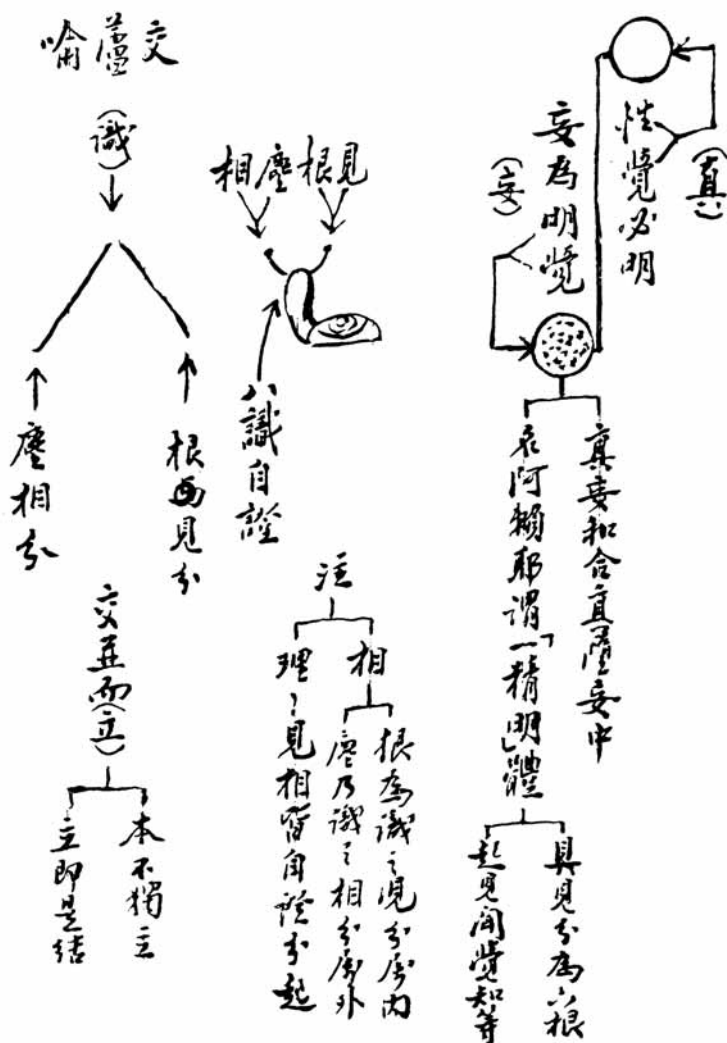 (真)
性覺必明
妄為明覺
(妄)
真妄和合真墮妄中
名阿賴耶謂「一精明」體
具見分為六根
起見聞覺知等
見根塵相
八識自證
注
相
根為識之見分屬內
塵乃識之相分屬外
理：見相皆自證分起
交蘆喻
(識)
根 見分
塵相分
交並而(立)
本不獨立
立即是結